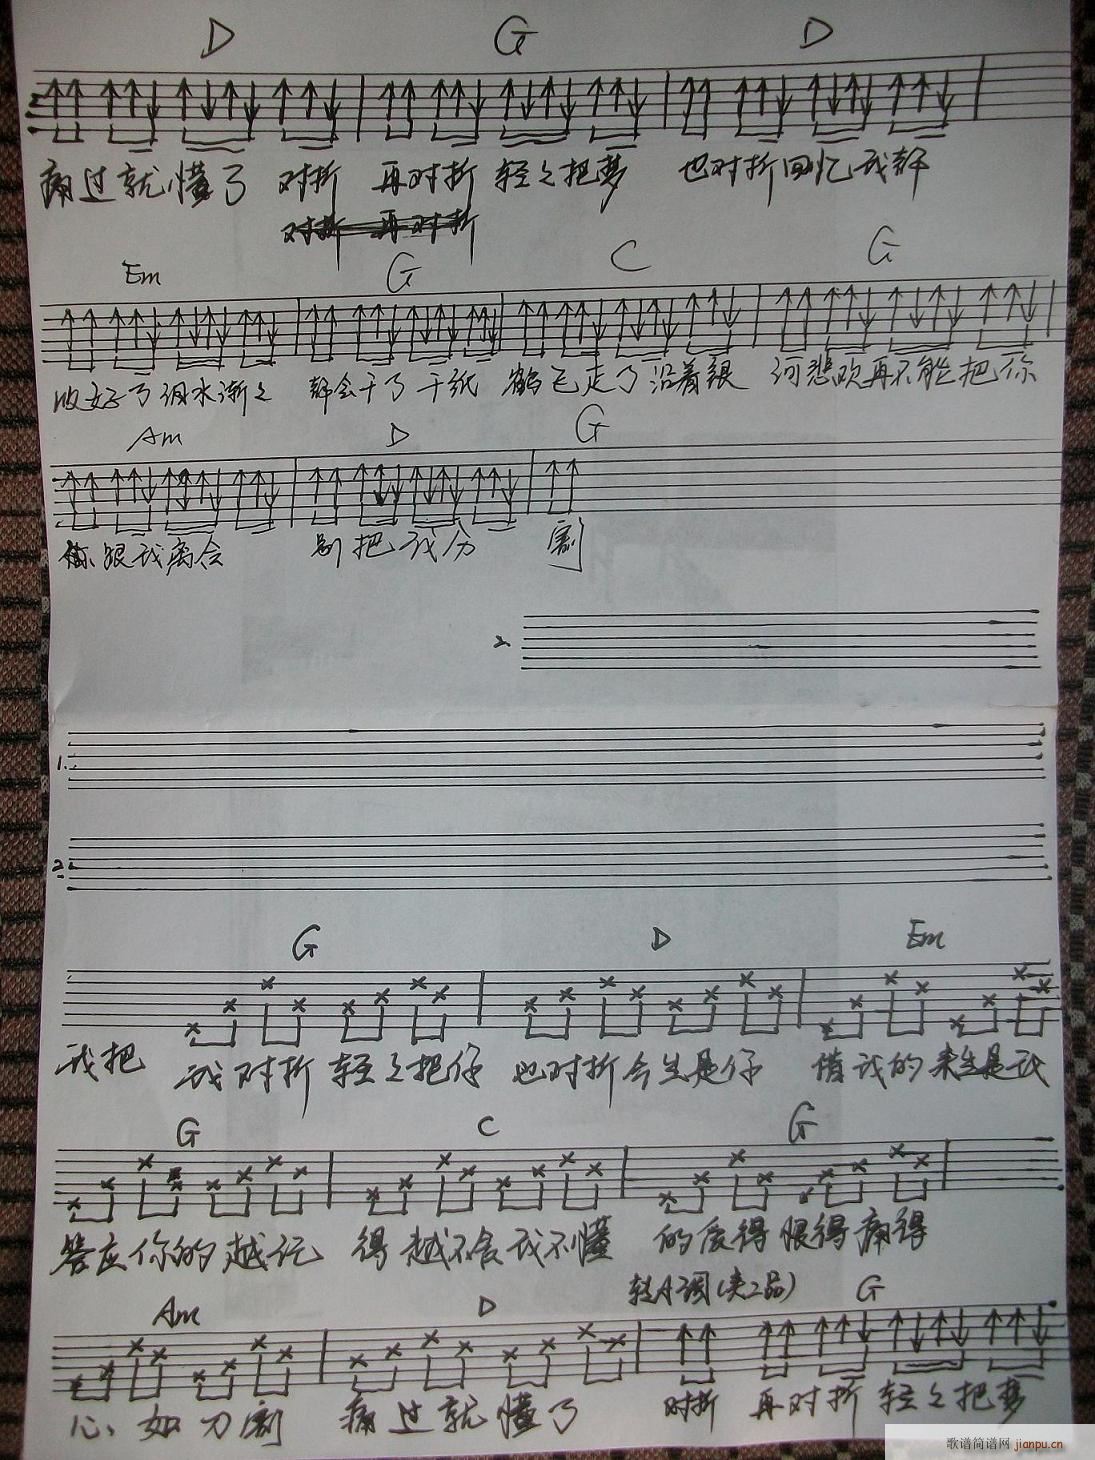 D G D
痛过就懂了 对折 再对折 轻轻把梦 也对折回忆我都
对折 再对折
Em G C G
收好了泪水渐々 都会干了 千纸 鹤飞走了沿着 河悲欢再不能把你
Am D G
你跟我离合 别把我分 割
2
1.
2.
G D Em
我把 我对折 轻々把你 也对折今生是你 借我的来生是我
G C G
答应你的越记 得越不舍我不懂 的爱得恨得痛得
转A调(夹2品)
Am D G
心如刀割 痛过就懂了 对折 再对折 轻々把梦
歌谱简谱网 jianpu.cn